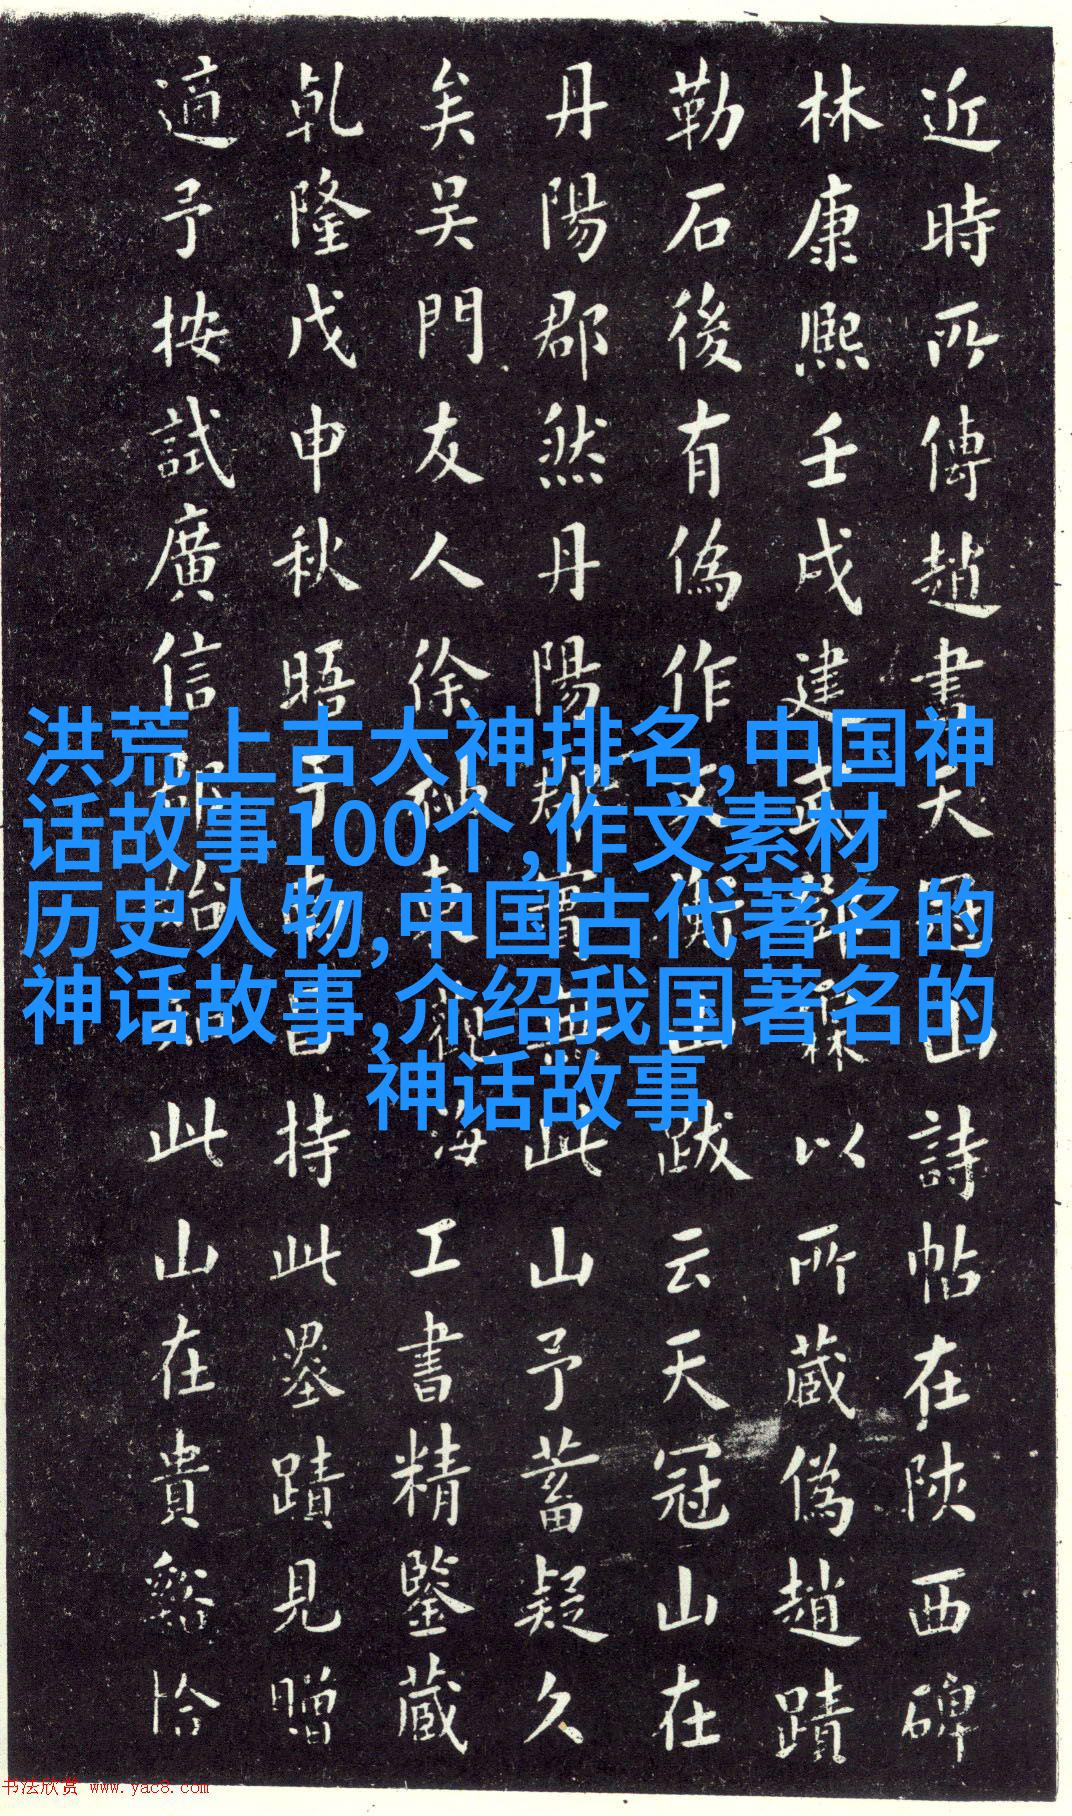 近時所傳趙書天冠山詩帖在陝西碑
林康熙壬戌建武鄭以所蔵偽趙蹟
勒石後有偽作文衡山跋云天冠山在
丹陽郡然丹陽郡實無此山予蓄疑久
矣吳門友人徐東觀海工書精鑒蔵
乹隆戊申秋晤于南昌持此墨蹟見贈
適予按試廣信郡始知此山在貴谿恰
洪荒上古大神排名,中国神
话故事100个,作文素材
历史人物,中国古代著名的
神话故事,介绍我国著名的
神话故事
书法欣赏 www.yac8.com